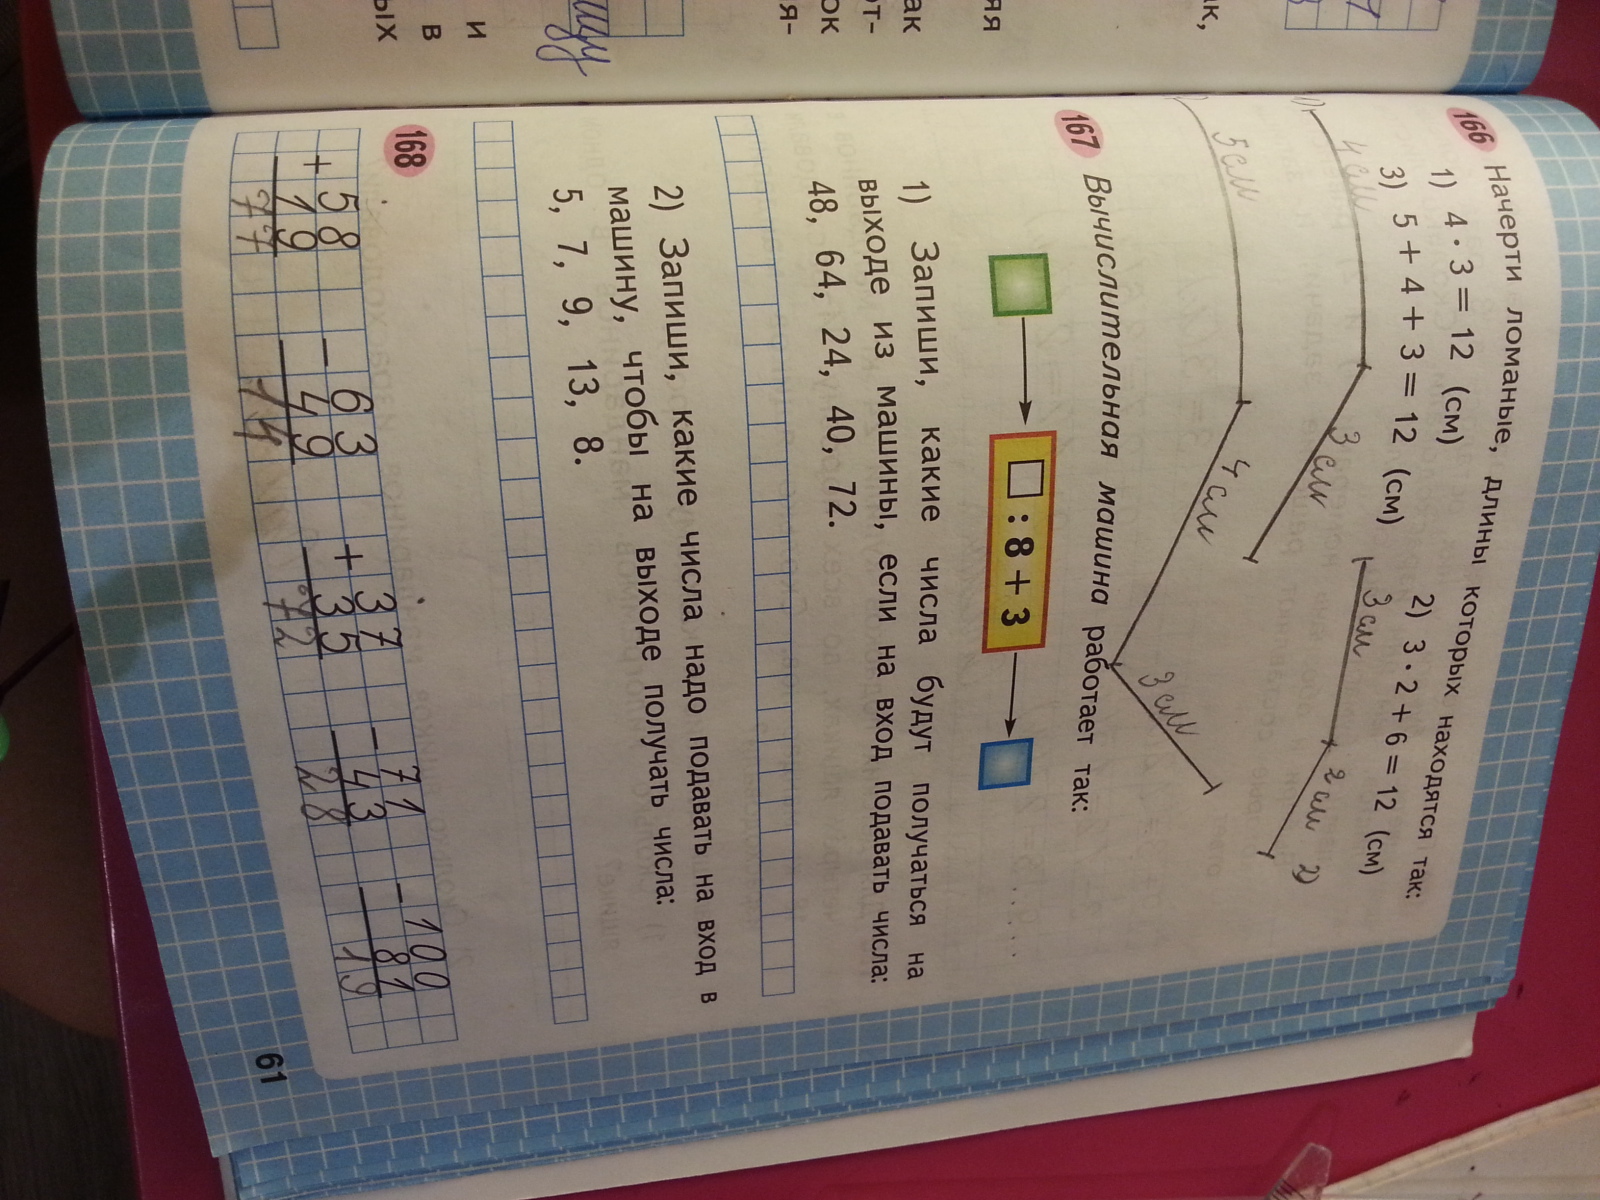 166 Начерти ломаные, длины которых находятся так:
1) 4 · 3 = 12 (см) 2) 3 · 2 + 6 = 12 (см)
3) 5 + 4 + 3 = 12 (см)
4 см 3 см 3 см 2 см 2)
5 см 4 см 3 см
167 Вычислительная машина работает так:
□ : 8 + 3
1) Запиши, какие числа будут получаться на
выходе из машины, если на вход подавать числа:
48, 64, 24, 40, 72.
2) Запиши, какие числа надо подавать на вход в
машину, чтобы на выходе получать числа:
5, 7, 9, 13, 8.
168
58 63 37 71 100
+ 19 − 49 + 35 − 43 − 81
77 14 72 28 19
61
ак,
яя
ак
от-
ок
я-
и
в
ых